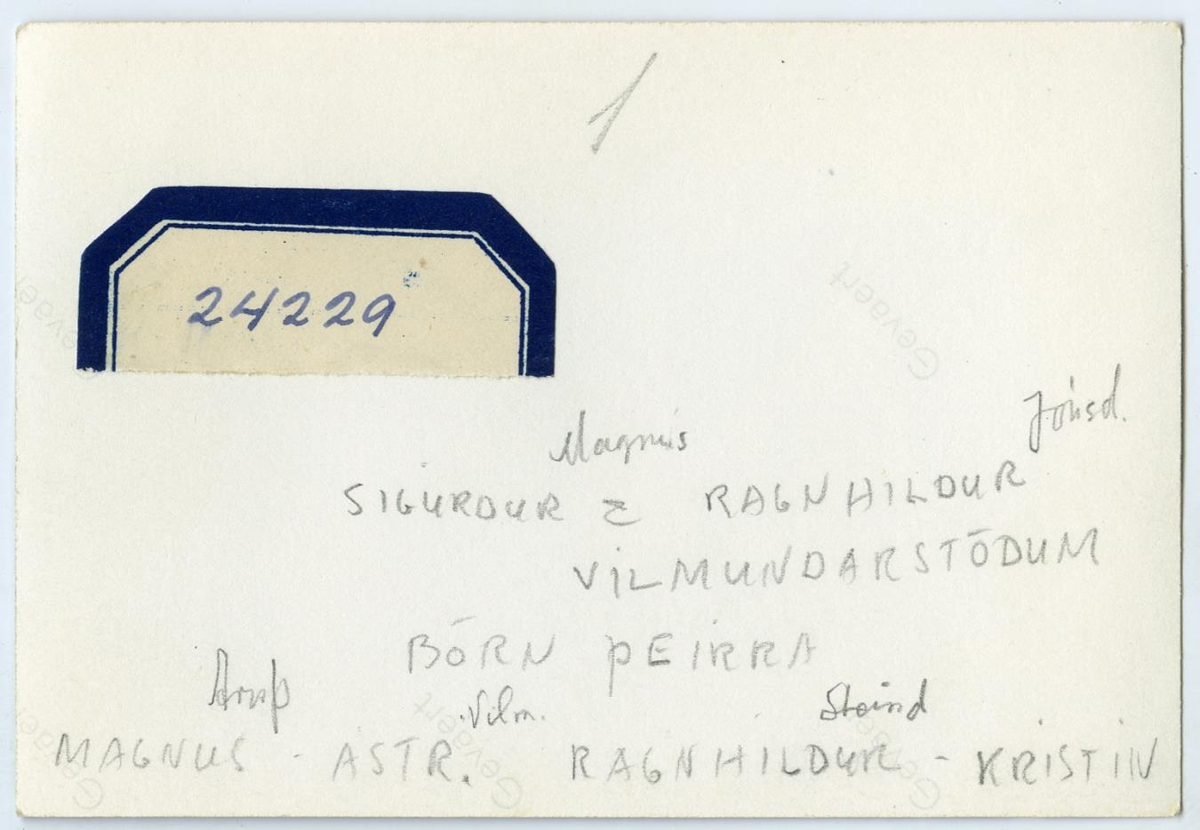 1
24229
Magnús Jónsd.
SIGURDUR & RAGNHILDUR
VILMUNDARSTÖDUM
BÖRN ÞEIRRA
Arnþ Vilm. Steind
MAGNUS - ASTR. RAGNHILDUR - KRISTIN
Gevaert
Gevaert
Gevaert
Gevaert
Gevaert